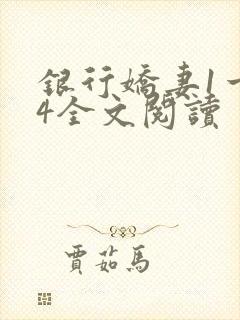 銀行嬌妻1一
4全文閱讀
賈茹馬